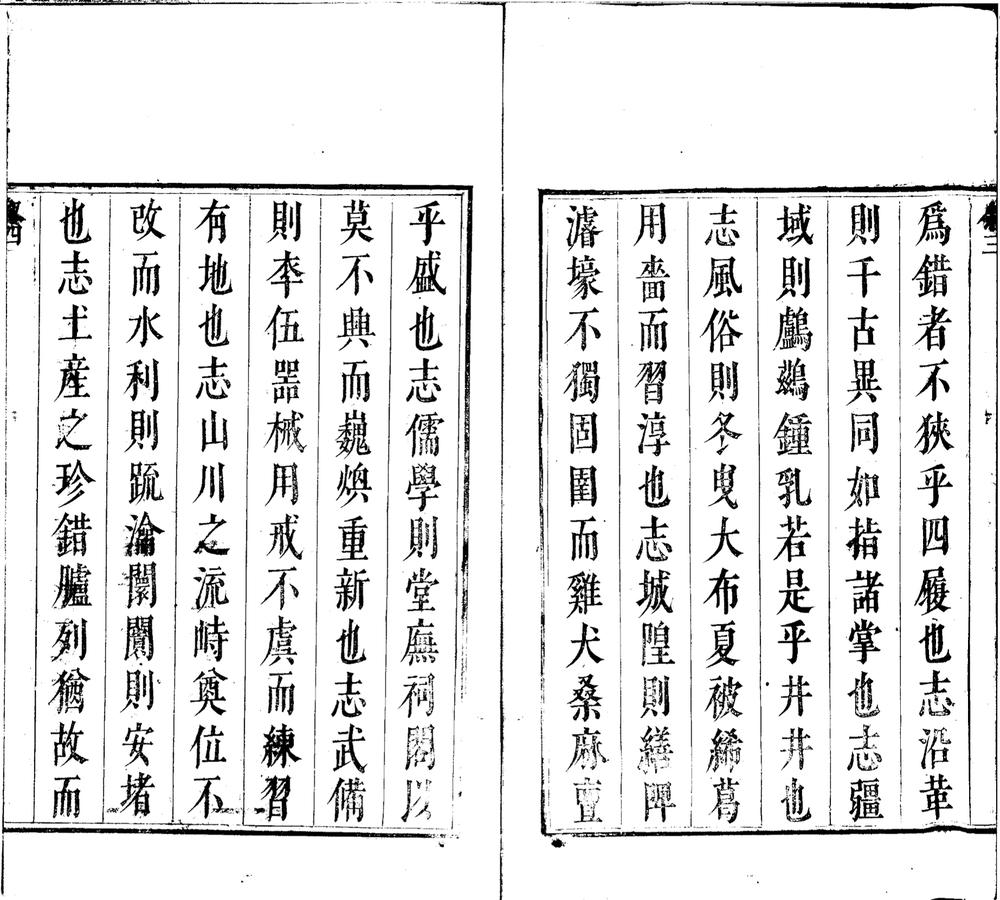 爲錯者不狹乎四履也志沿革
則千古異同如指諸掌也志疆
域則鸕鷀鐘乳若是乎井井也
志風俗則冬曳大布夏被絺葛
用嗇而習淳也志城隍則繕陴
濬壕不獨固圉而雞犬桑麻
乎盛也志儒學則堂廡祠閣以
莫不興而巍煥重新也志武備
則李伍器械用戒不虞而練習
有地也志山川之流峙奠位不
改而水利則䟽瀹闤闠則安堵
也志土產之珍錯臚列猶故而